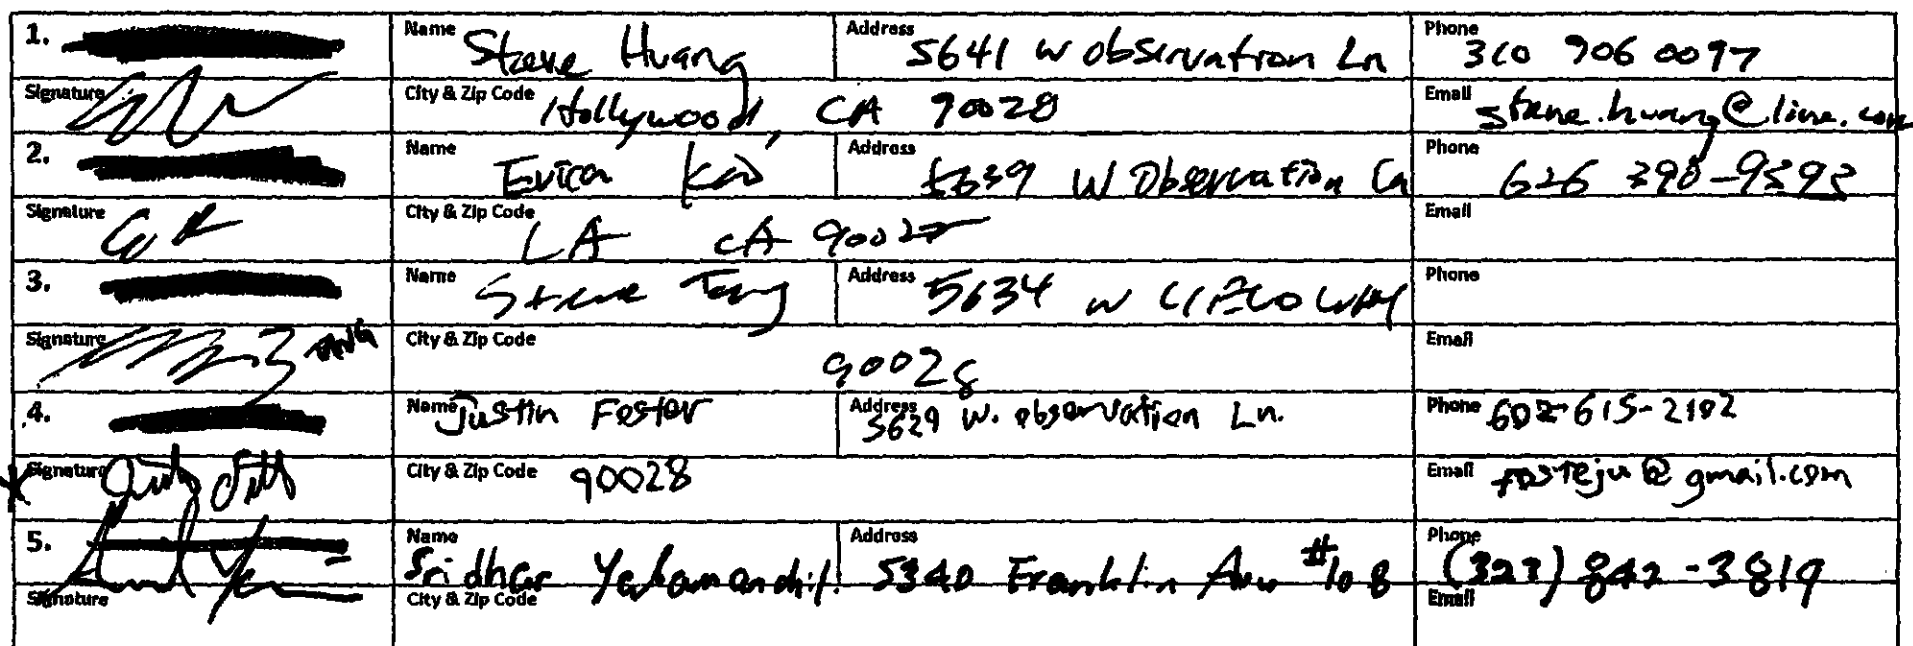 1. Name Steve Huang Address 5641 W Observation Ln Phone 310 906 0097
Signature City & Zip Code Hollywood, CA 90028 Email steve.huang@live.com
2. Name Erica Kao Address 5639 W Observation Ln Phone 626 390-9593
Signature City & Zip Code LA CA 90027 Email
3. Name Steve Tang Address 5634 W Phone
Signature City & Zip Code 90028 Email
4. Name Justin Foster Address 5629 W. Observation Ln. Phone 602-615-2102
Signature City & Zip Code 90028 Email fosteju@gmail.com
5. Name Sridhar Address 5340 Franklin Ave #108 Phone (323) 842-3819
Signature City & Zip Code Email